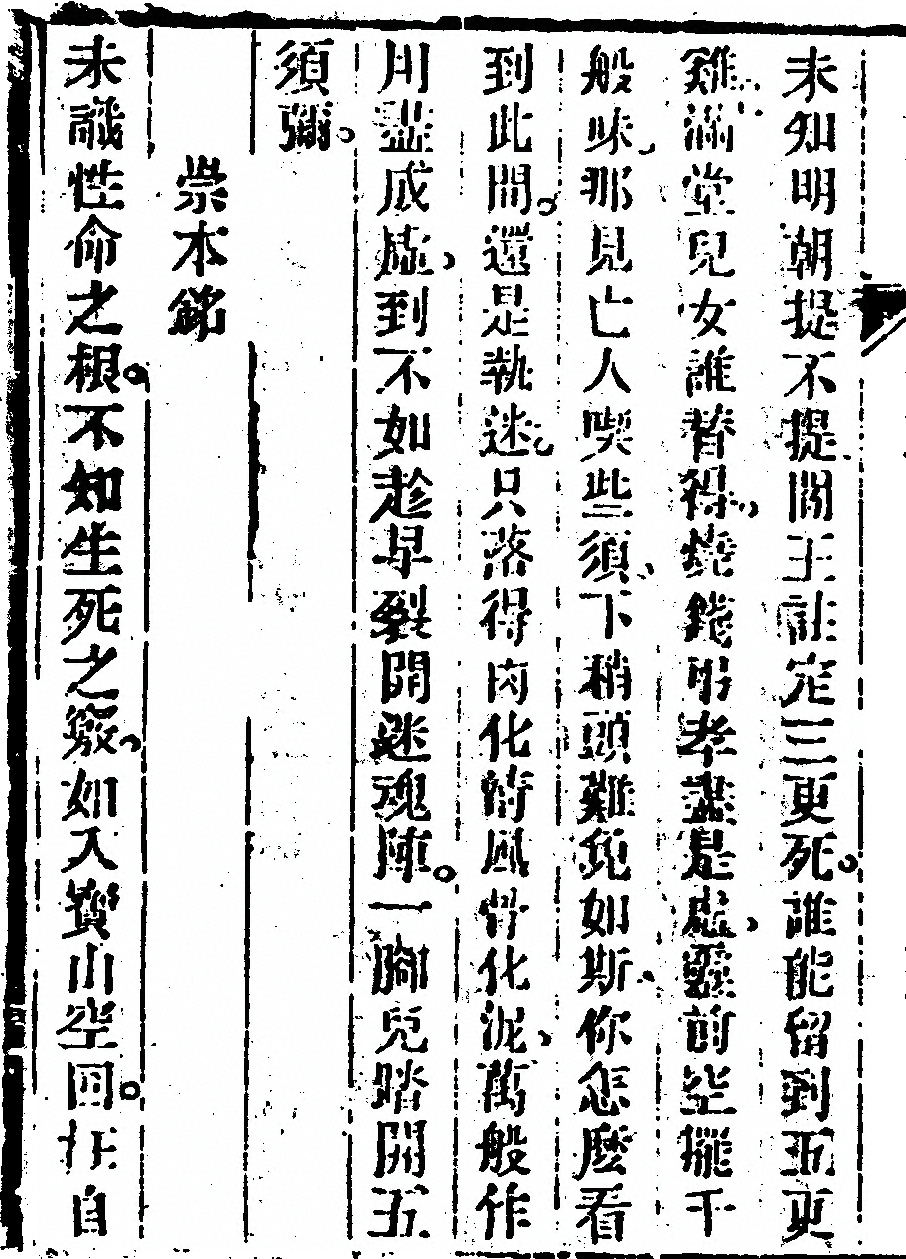 未知明朝提不提閻王註定三更死誰能留到五更
雞滿堂兒女誰替得燒錢帶孝盡是虛靈前空擺千
般味那見亡人喫些須下稍頭難免如斯你怎麼看
到此間還是執迷只落得肉化清風骨化泥萬般作
用盡成虛到不如趁早裂開迷魂陣一腳兒踏開五
須彌
崇本銘
未識性命之根不知生死之竅如入寶山空回枉自